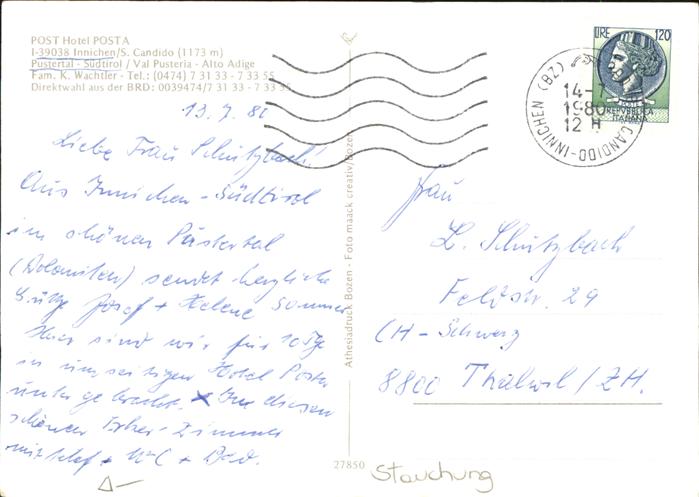 POST Hotel POSTA
I-39038 Innichen/S. Candido (1173 m)
Pustertal - Südtirol / Val Pusteria - Alto Adige
Fam. K. Wachtler - Tel.: (0474) 7 31 33 - 7 33 55
Direktwahl aus der BRD: 0039474/7 31 33 - 7 33 55
13. 7. 80
Liebe Frau Schutzbach!
Aus Innichen - Südtirol
im schönen Pustertal
(Dolomiten) sendet herzliche
Grüße Josef + Helene Sommer
Hier sind wir für 10 Tge
in umseitigen Hotel Posta
untergebracht. In diesen
schönen Zimmer
mit + WC + Bad.
Athesiadruck Bozen - Foto maack creativ/Bozen
27850
LIRE 120
REPUBBLICA
ITALIANA
CANDIDO-INNICHEN (BZ)
14-7
1980
12 H
Frau
L. Schutzbach
Feldstr. 29
CH - Schweiz
8800 Thalwil / ZH.
Stauchung